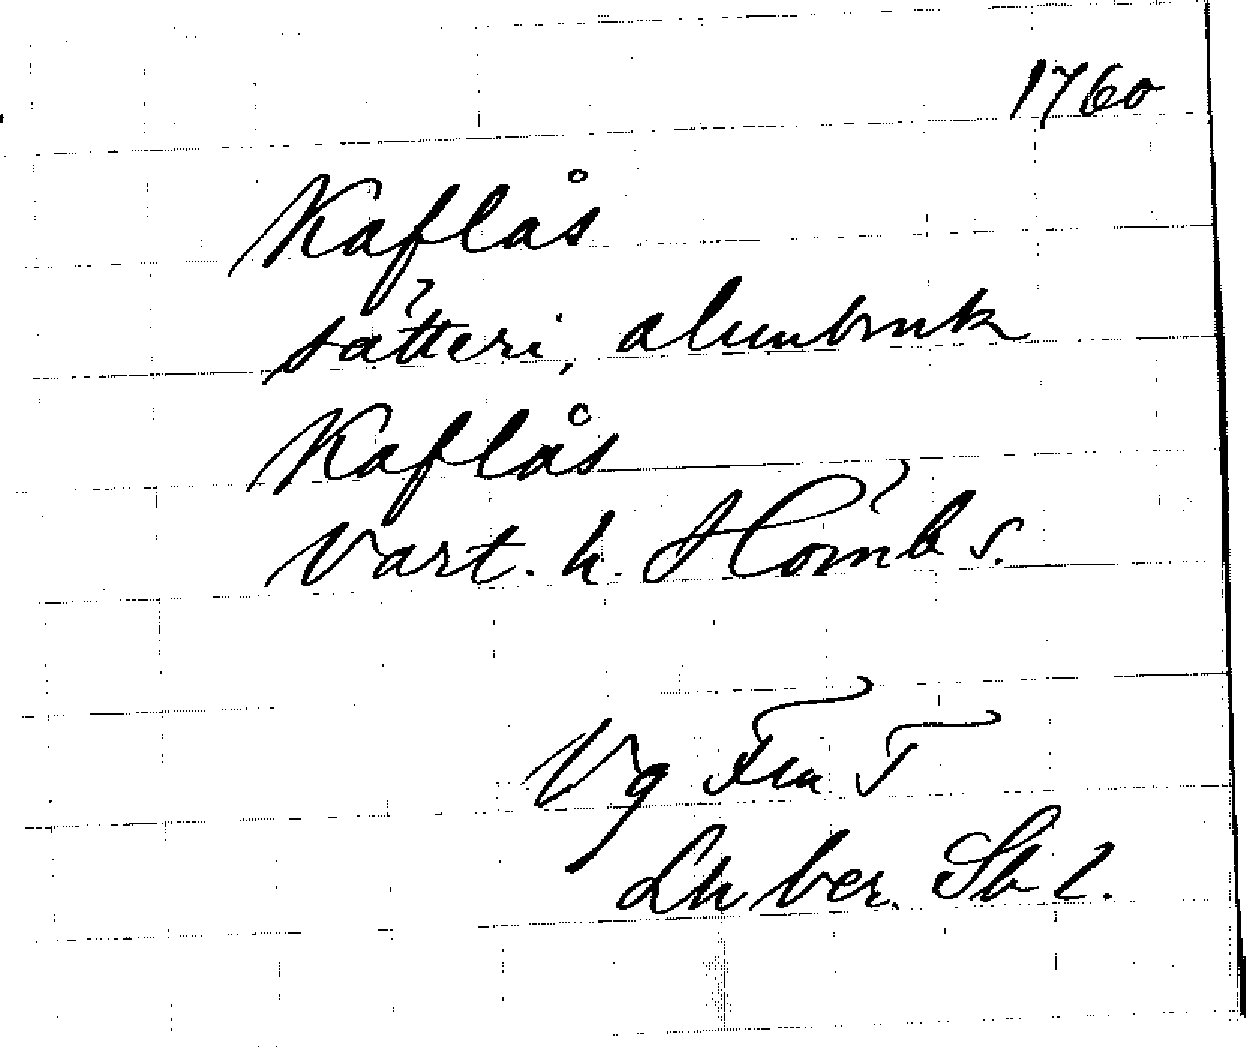 1760
Kaflås
sätteri, alunbruk
Kaflås
Vart. h. Hömb s.
Vg Frn T
Lh ber. Sb l.